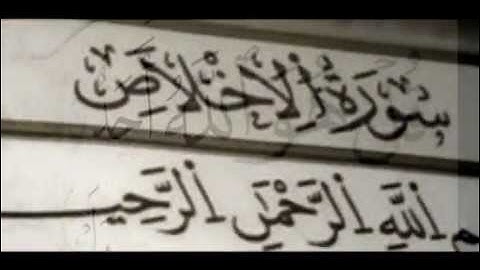 سُوْرَةُ اْلاِخْلَاصِ
م اللهِ الرَّحْمٰنِ الرَّحِيـ